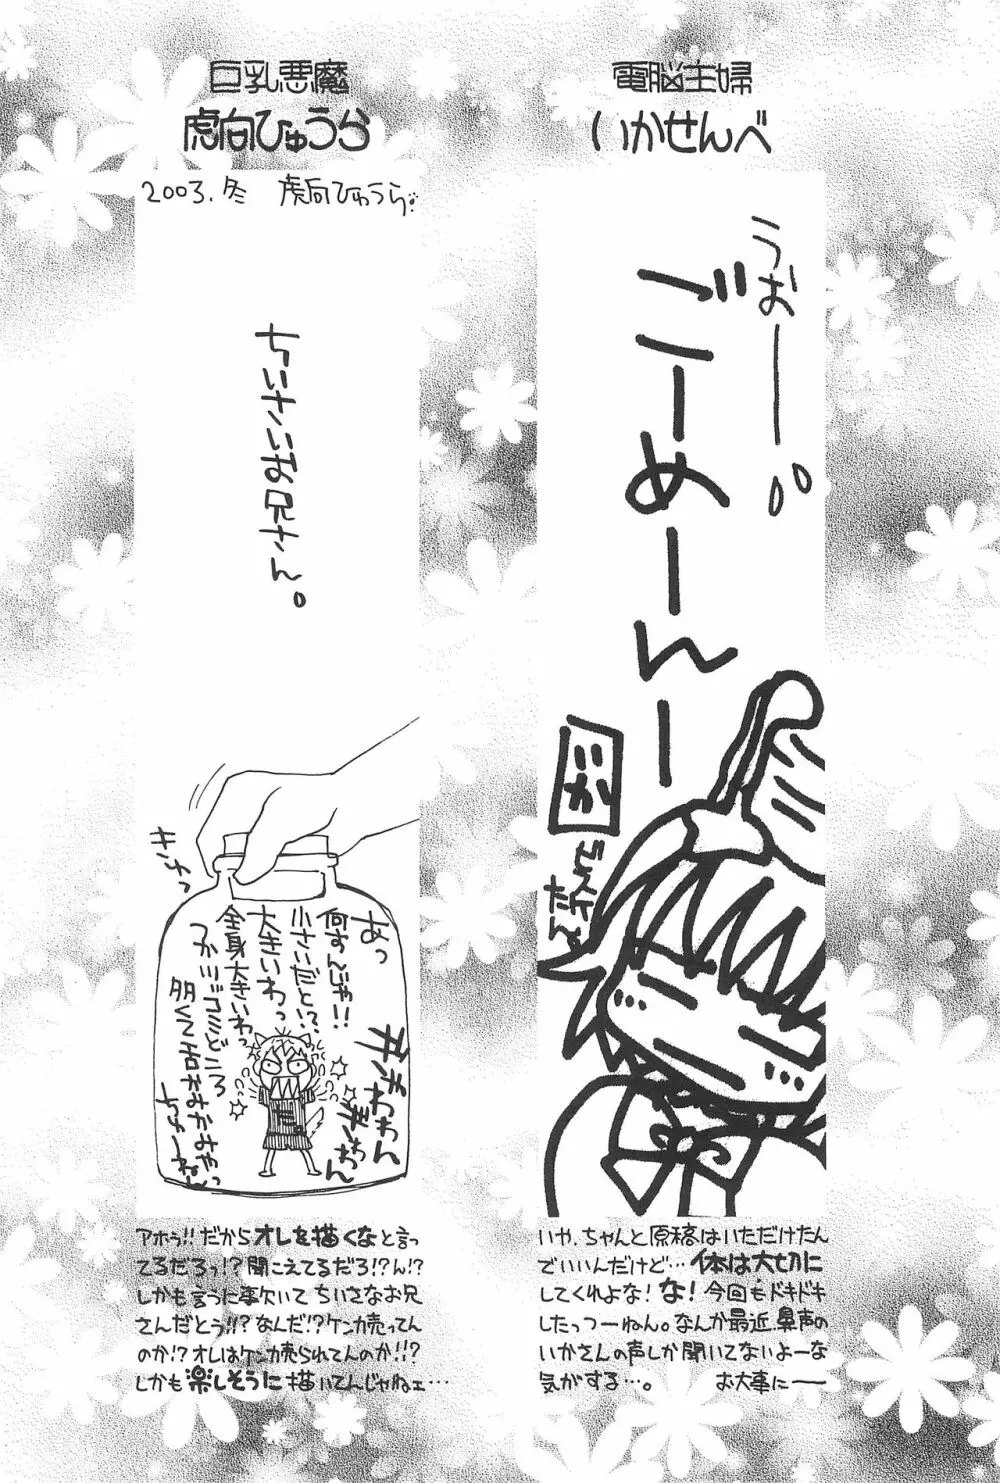 電脳主婦
いかせんべ
うおーー。
ごーめーんー
いか
いや、ちゃんと原稿はいただけたん
でいいんだけど…体は大切に
してくれよな!な!今回もドキドキ
したっつーねん。なんか最近、鼻声の
いかさんの声しか聞いてないよーな
気がする…。 お大事にー
巨乳悪魔
虎向ひゅうら
2003.冬 虎向ひゅうら。
ちいさいお兄さん。
きゅっ
あっ
何すんじゃ!!
小さいだと!?
大きいわっ
全身大きいわっ
つかミニミニどころ
アホゥ!!だからオレを描くなと言っ
てるだろっ!?聞こえてるだろ!?ん!?
しかも言うに事欠いてちいさなお兄
さんだとう!!?なんだ!?ケンカ売ってん
のか!?オレはケンカ売られてんのか!!?
しかも楽しそうに描いてんじゃねェ…